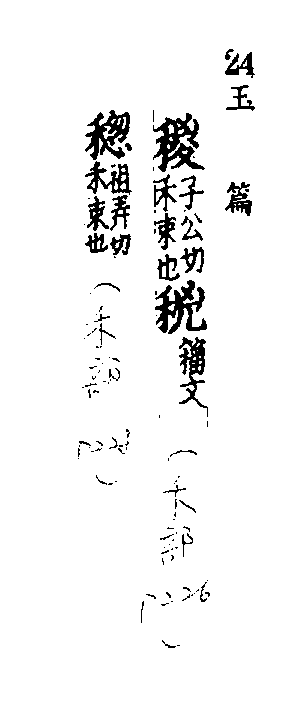 24 玉篇
稯 子公切 禾束也 籀文 (禾部 P226)
祖弄切 禾束也 (禾部